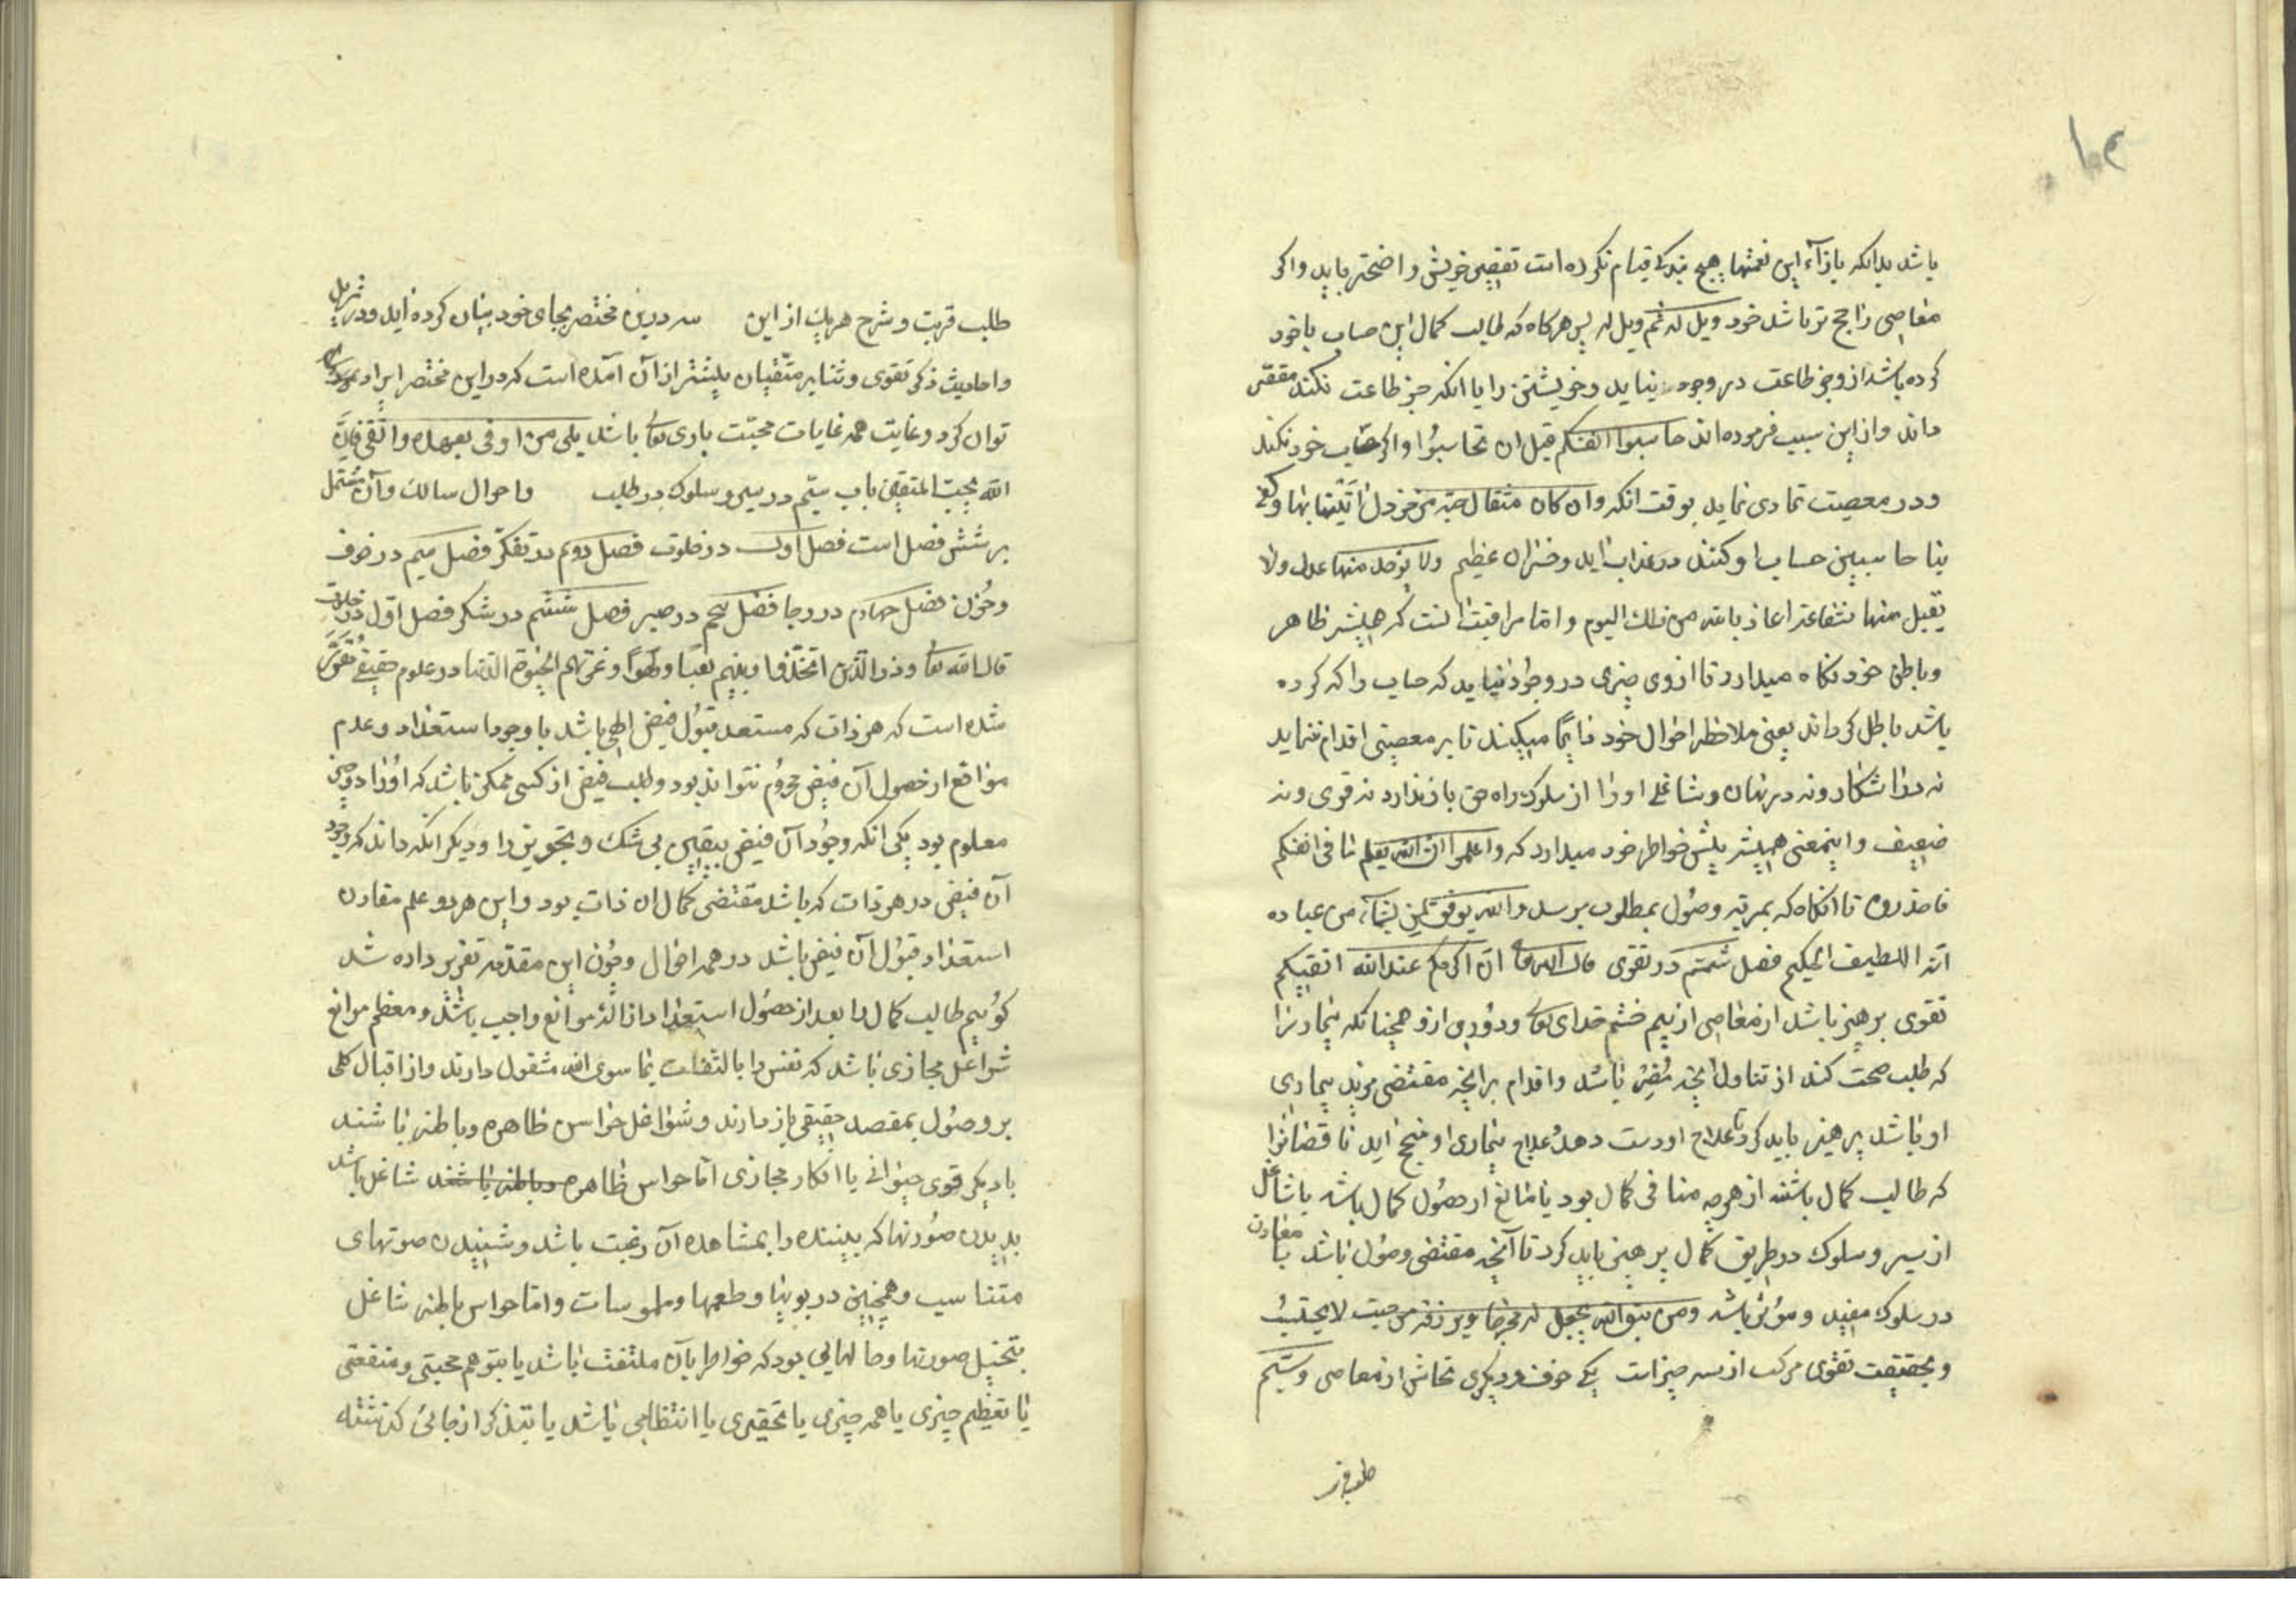 ۱۰۲
باشد بدانکه بازآء این نعمتها هیچ بندگی قیام نکرده است تقصیر خویش واضحتر باید واکر
معاصی راجح تر باشد خود ویل له ثم ویل له پس هرکاه که طالب کمال این حساب با خود
کرده باشد ازو جز طاعت در وجود نیاید وخویشتن را با انکه جز طاعت نکند مقصر
داند واز این سبب فرموده اند حاسبوا انفسکم قبل ان تحاسبوا واکر حساب خود نکند
ودر معصیت تمادی نماید بوقت انکه وان کان مثقال حبة من خردل اتینا بها وکفی
بنا حاسبین حساب او کنند در عذاب ابد وخسران عظیم ولا یؤخذ منها عدل ولا
تقبل منها شفاعة اعاذ بالله من ذلك الیوم واما مراقبت انست که همیشه ظاهر
وباطن خود نکاه میدارد تا ازوی چیزی در وجود نیاید که حساب را که کرده
باشد باطل کرداند یعنی ملاحظه احوال خود دایما میکند تا بر معصیتی اقدام ننماید
نه در اشکار ونه در نهان وشاغلی اورا از سلوک راه حق باز ندارد نه قوی ونه
ضعیف واینمعنی همیشه پیش خواطر خود میدارد که واعلموا ان الله یعلم ما فی انفسکم
فاحذروه تا انکاه که بمرتبه وصول بمطلوب برسد والله یوفق لمن یشآء من عباده
انه اللطیف الحکیم فصل ششم در تقوی قال الله تعالی ان اکرمکم عند الله اتقیکم
تقوی پرهیز باشد از معاصی از بیم خشم خدای تعالی ودوری ازو همچنانکه بیمار را
که طلب صحت کند از تناول انچه مضر باشد واقدام بر انچه مقتضی مزید بیماری
او باشد پرهیز باید کرد تا علاج او دست دهد وعلاج بیماری او منجح آید ناقصانرا
که طالب کمال باشند از هرچه منافی کمال بود یا مانع از حصول کمال باشد یا شاغل
از سیر وسلوک در طریق کمال پرهیز باید کرد تا آنچه مقتضی وصول باشد یا معاون
در سلوک مفید ومؤثر باشد ومن یتق الله یجعل له مخرجا ویرزقه من حیث لا یحتسب
وبحقیقت تقوی مرکب از سه چیز است یکی خوف ودیکری تحاشی از معاصی وسیم
طلب قربت
طلب قربت وشرح هریك از این سه درین مختصر بجای خود بیان کرده اید ودر تنزیل
واحادیث ذکر تقوی وثنا بر متقیان بیشتر از آن آمده است که در این مختصر ایراد
توان کرد وغایت همه غایات محبت باری تعالی باشد بلی من اوفی بعهده واتقی فان
الله یحب المتقین باب سیم در سیر وسلوک در طلب واحوال سالك وآن مشتمل
بر شش فصل است فصل اول در خلوت فصل دوم در تفکر فصل سیم در خوف
وحزن فصل چهارم در رجا فصل پنجم در صبر فصل ششم در شکر فصل اول در خلوت
قال الله تعالی وذر الذین اتخذوا دینهم لعبا ولهوا وغرتهم الحیوة الدنیا در علوم حقیقی مقرر
شده است که هر ذات که مستعد قبول فیض الهی باشد با وجود استعداد وعدم
موانع از حصول آن فیض محروم نتواند بود وطلب فیض از کسی ممکن باشد که اورا دو چیز
معلوم بود یکی انکه وجود آن فیض بیقین بی شک وتجویز داند ودیکر انکه داند که وجود
آن فیض در هر ذات که باشد مقتضی کمال ان ذات بود واین هر دو علم مقارن
استعداد قبول آن فیض باشد در همه احوال وچون این مقدمه تقریر داده شد
کوئیم طالب کمال را بعد از حصول استعداد ازاله موانع واجب باشد ومعظم موانع
شواغل مجازی باشد که نفس را بالتفات بما سوی الله مشغول دارند واز اقبال کلی
بر وصول بمقصد حقیقی باز دارند وشواغل حواس ظاهره وباطنه باشند
یا دیکر قوی حیوانی یا افکار مجازی اما حواس ظاهره وباطنه باشند شاغل باشد
بدیدن صورتها که بیننده را بمشاهده آن رغبت باشد وشنیدن صوتهای
متناسب وهمچنین در بویها وطعمها وملموسات واما حواس باطنه شاغل
بتخیل صورتها وحالهایی بود که خواطر بآن ملتفت باشد یا بتوهم محبتی ومنفعتی
یا تعظیم چیزی یا همه چیزی یا تحقیری یا انتظامی باشد یا بتذکر از حالی کذشته